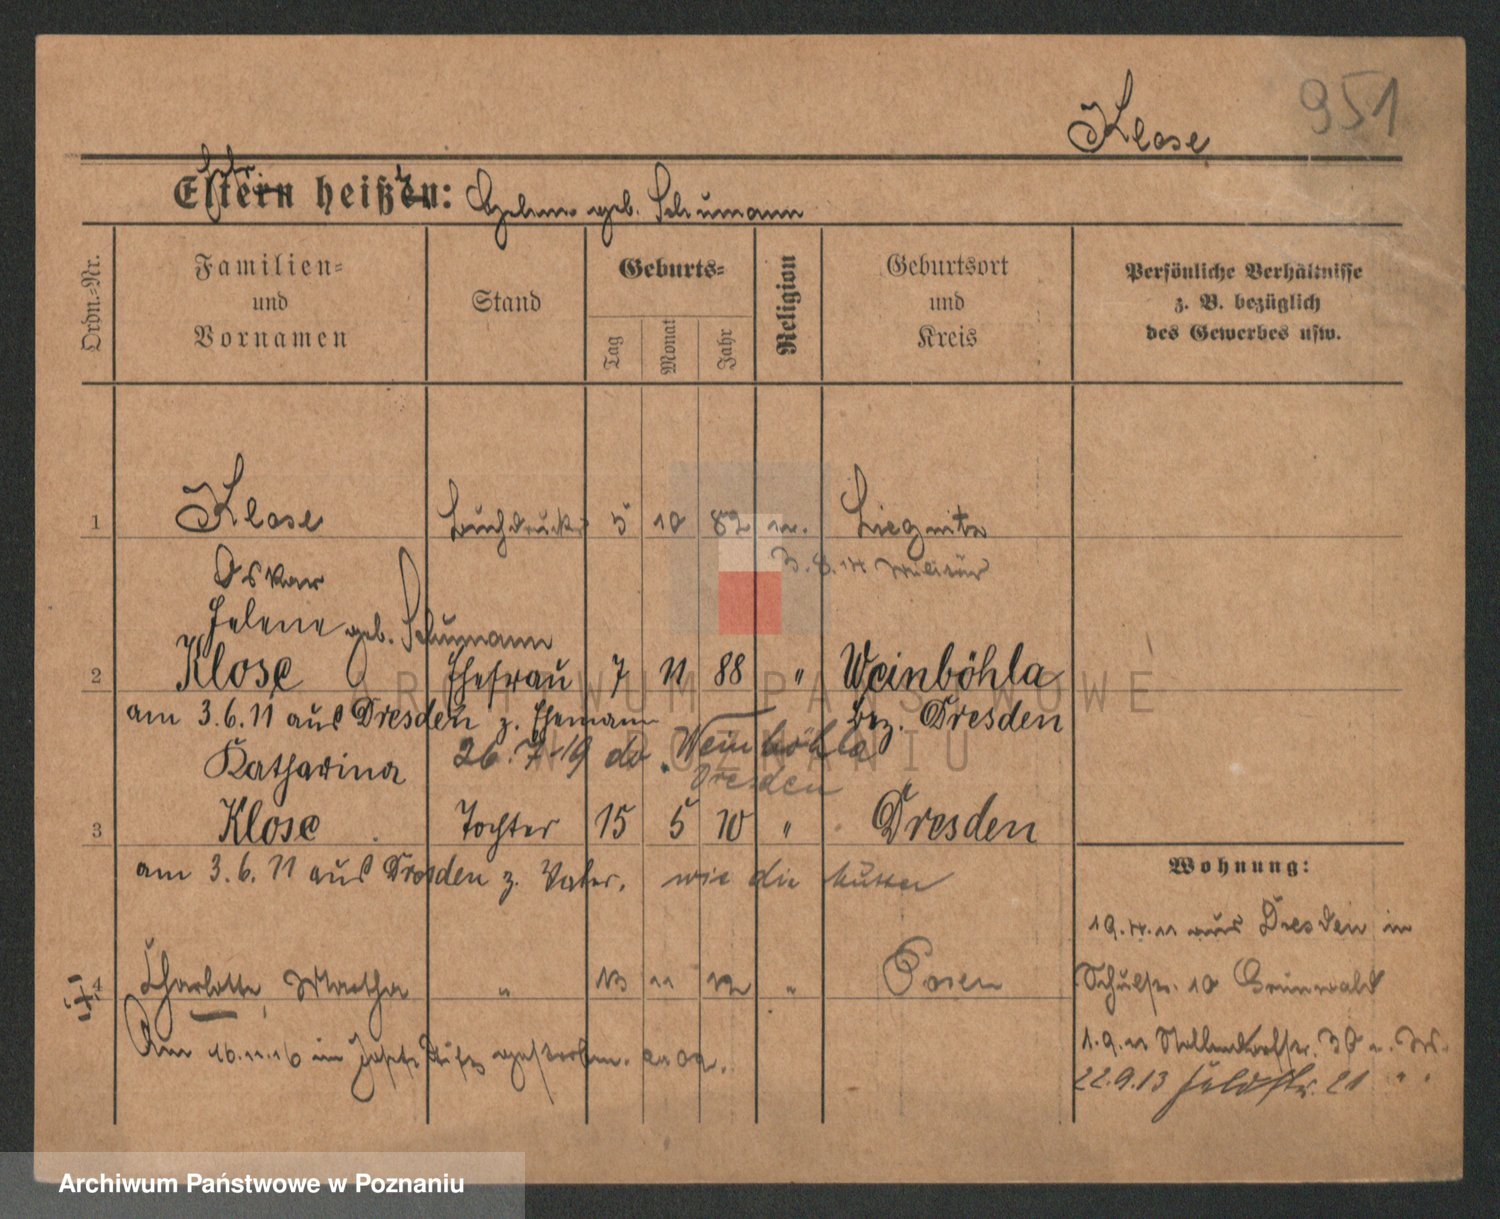 Klose
951
Eltern heißen: geb. Schumann
Ordn.=Nr.
Familien=
und
Vornamen
Stand
Geburts=
Tag
Monat
Jahr
Religion
Geburtsort
und
Kreis
Persönliche Verhältnisse
z. B. bezüglich
des Gewerbes usw.
1 Klose Buchdrucker 5 10 82 Liegnitz
Oskar 3.8.14 Militär
Helene geb. Schumann
2 Klose Ehefrau 7 11 88 " Weinböhla
am 3.6.11 aus Dresden z. Ehemann Bez. Dresden
26.7.19 Weinböhla
Dresden
Katharina
3 Klose Tochter 15 5 10 " Dresden
am 3.6.11 aus Dresden z. Vater. wie die Mutter
Wohnung:
19.4.11 aus Dresden in
4 Charlotte, Martha " 13 11 12 " Posen
Schulstr. 10 Grünwald
Am 16.11.16 im gestorben.
1.9.11
22.9.13 Feldstr. 21 " "
ARCHIWUM PAŃSTWOWE
W POZNANIU
Archiwum Państwowe w Poznaniu